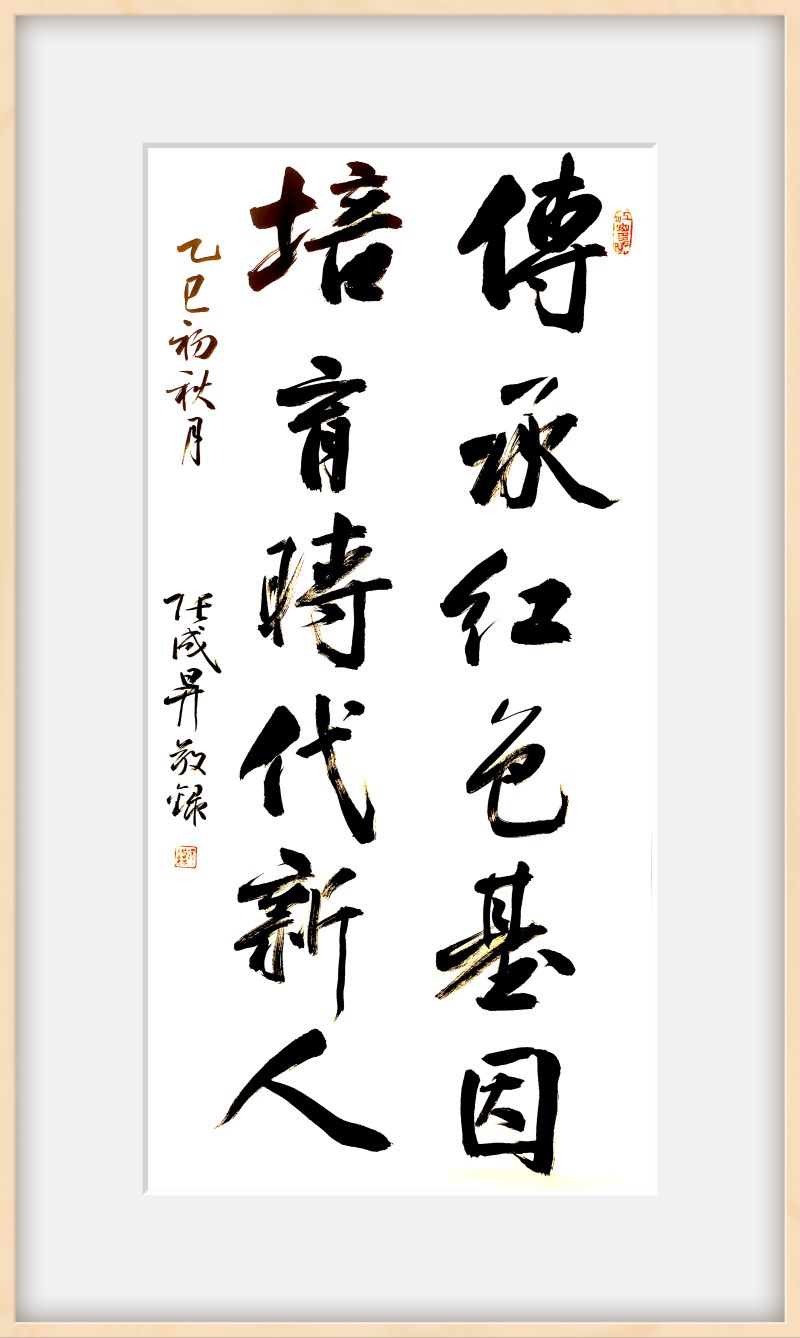 傳承红色基因
培育時代新人
乙巳初秋月
任成昇敬録